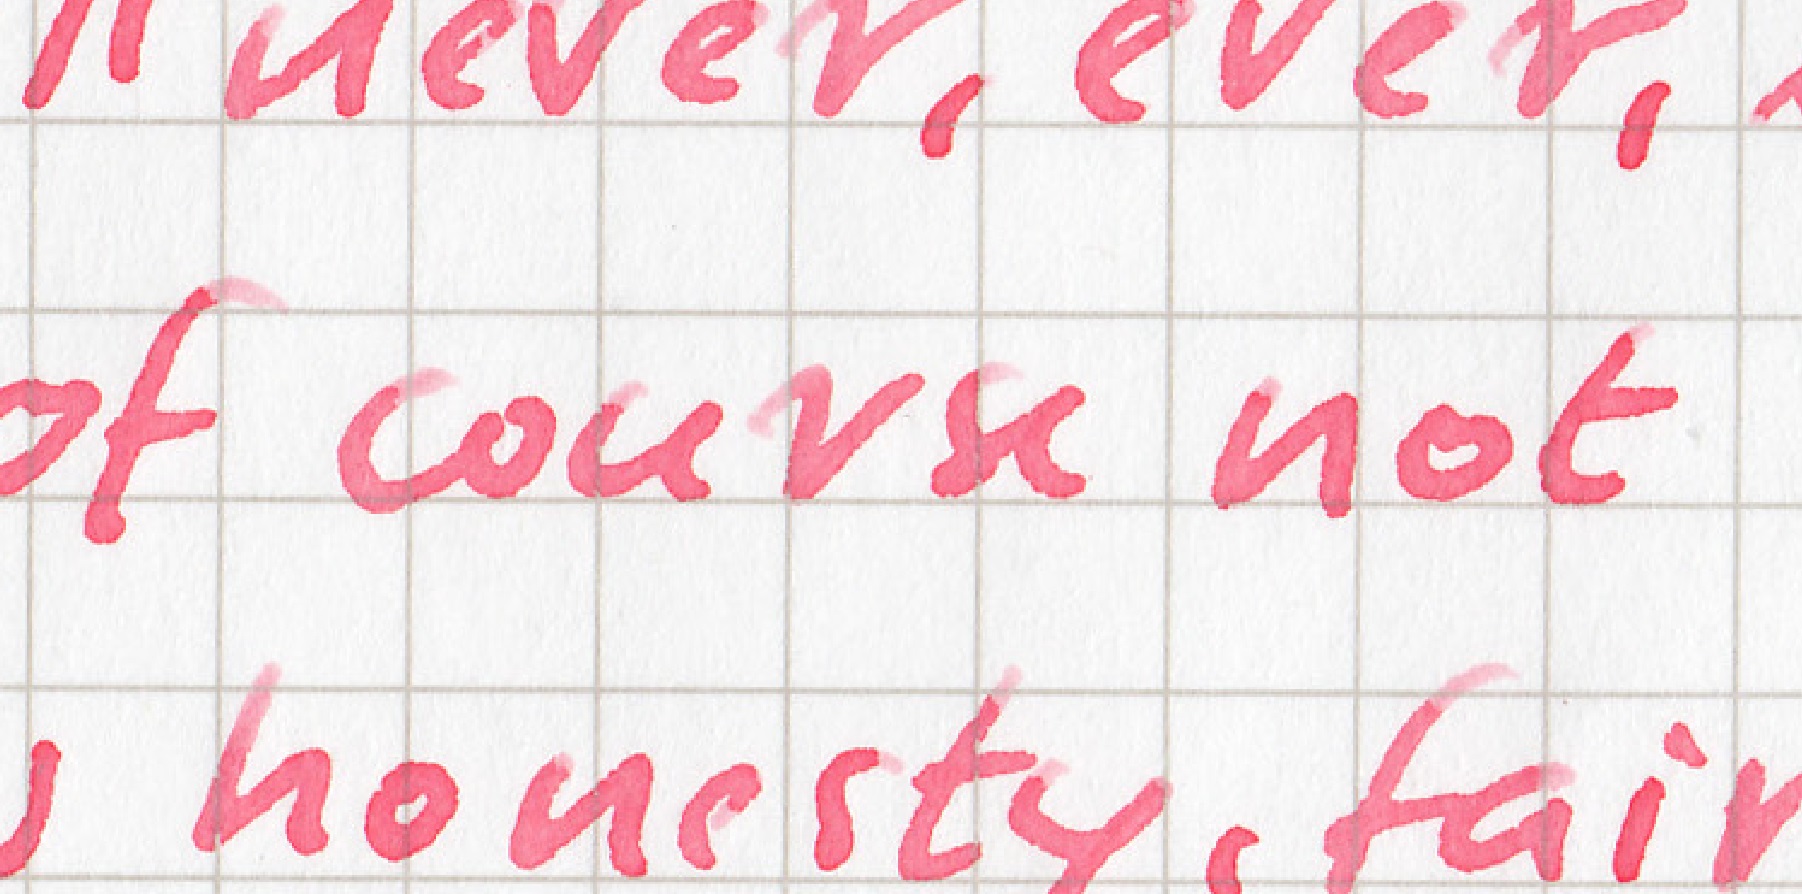 never, ever,
of course not
honesty, fair